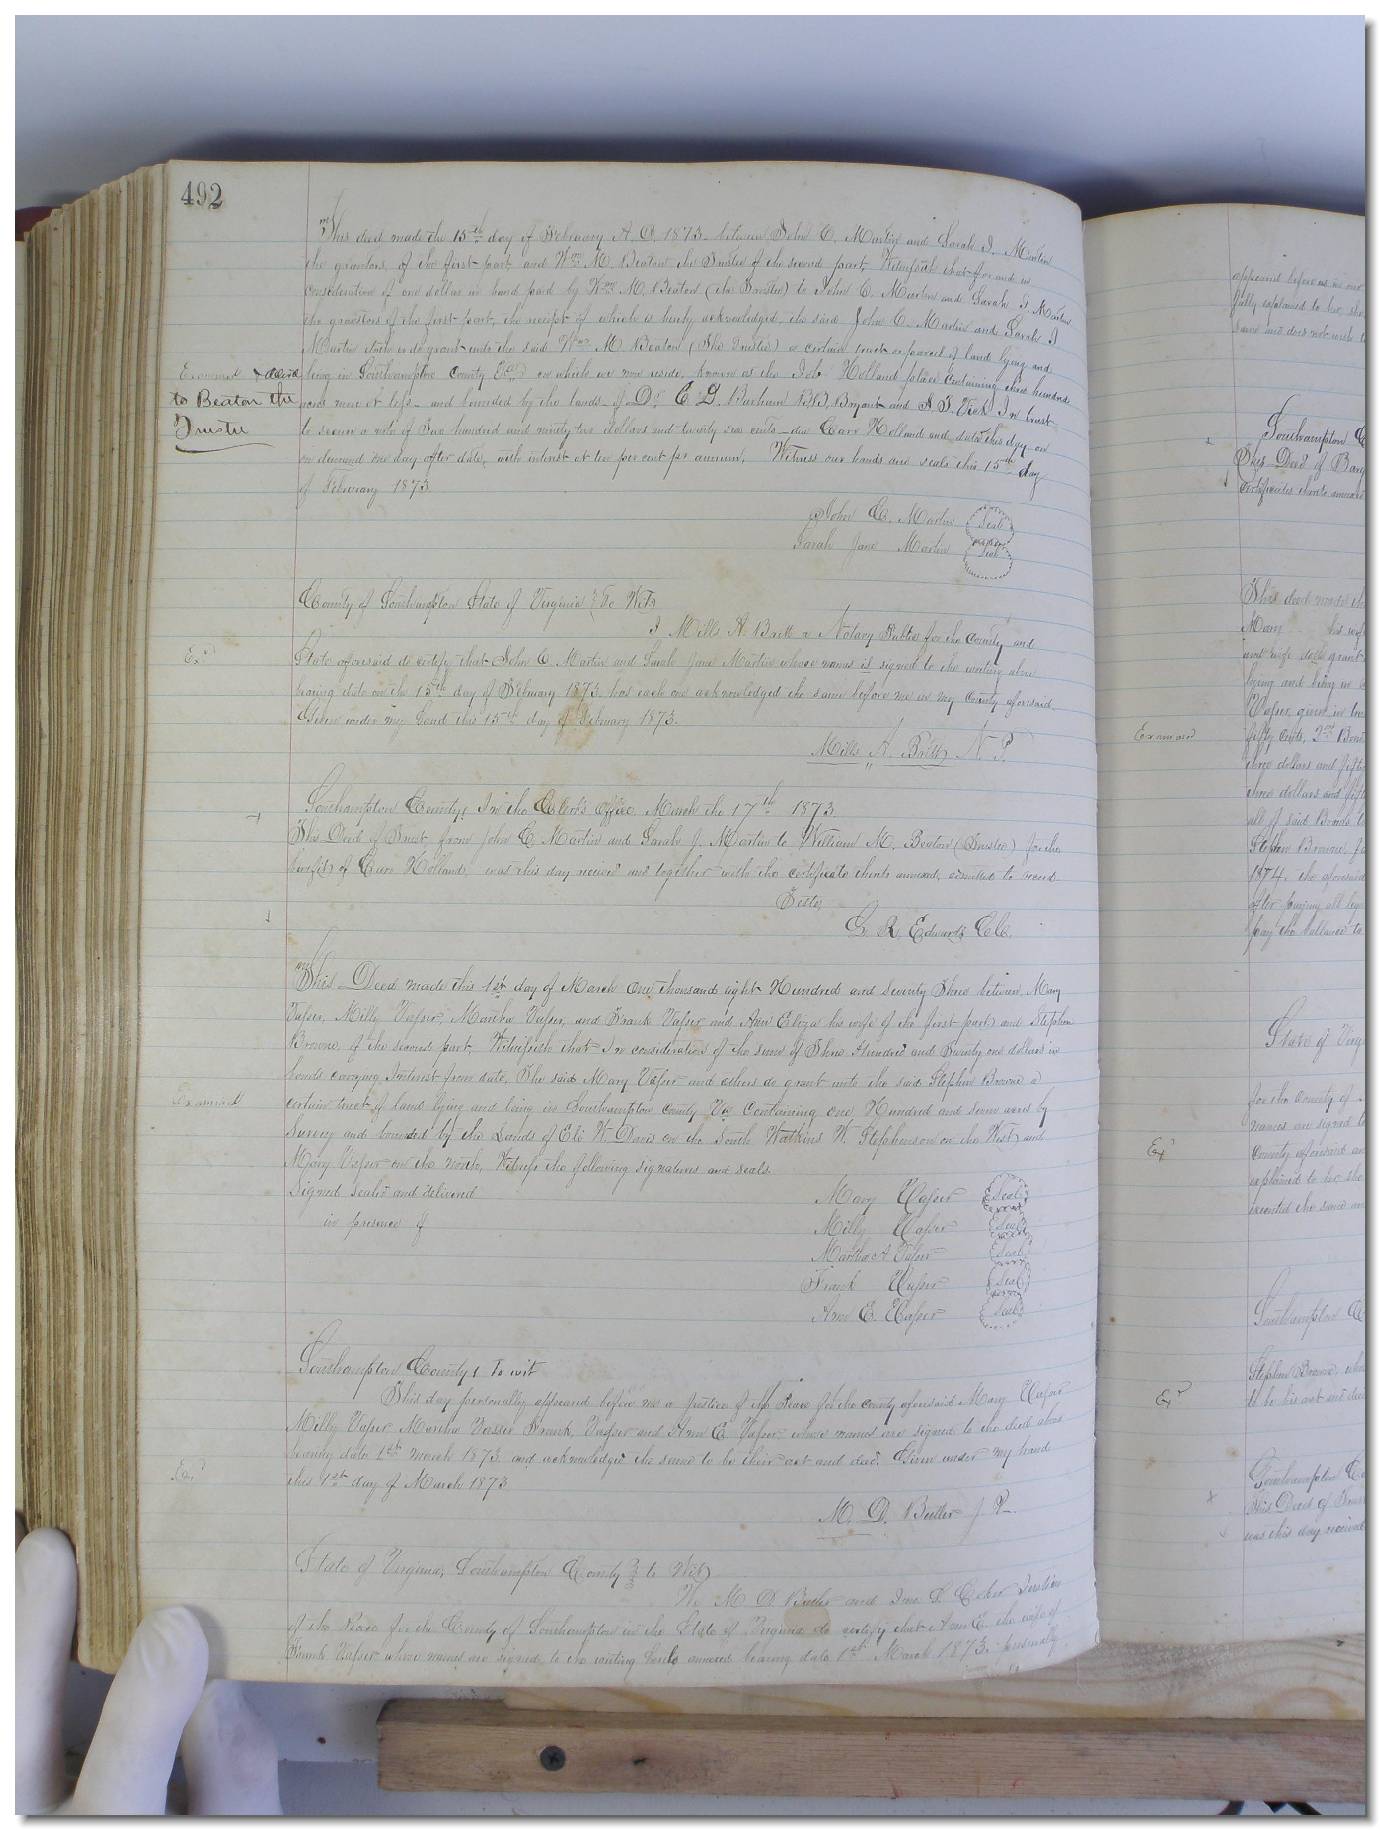 492
This deed made the 15th day of February A. D. 1873 between John C. Martin and Sarah J. Martin
the grantors, of the first part, and Wm M. Beaton the Trustee of the second part, Witnesseth that for and in
consideration of one dollar in hand paid by Wm M. Beaton (the Trustee) to John C. Martin and Sarah J. Martin
the grantors of the first part, the receipt of which is hereby acknowledged, the said John C. Martin and Sarah J
Martin do grant unto the said Wm M. Beaton (The Trustee) a certain tract or parcel of land lying and
Examined & delivd
to Beaton the
Trustee
being in Southampton County on which we now reside, known as the Holland place containing three hundred
acres more or less and bounded by the lands of Dr. C. G. Barham B.D. Bryant and Vick In trust
to secure a note of hundred and ninety two dollars and twenty six cents due Carr Holland and dated this day on
on demand one day after date, with interest at ten per cent per annum. Witness our hands and seals this 15th day
of February 1873.
John C. Martin Seal
Sarah Jane Martin Seal
County of Southampton State of Virginia } To Wit,
I Mills A. Britt a Notary Public for the County and
Exd
State aforesaid do certify that John C Martin and Sarah Jane Martin whose names is signed to the writing above
bearing date on the 15th day of February 1873 has each one acknowledged the same before me in my county aforesaid
Given under my hand this 15th day of February 1873.
Mills A. Britt N. P.
Southampton County, In the Clerk's Office, March the 17th 1873
This Deed of Trust from John C. Martin and Sarah J. Martin to William M. Beaton (Trustee) for the
benefit of Carr Holland, was this day received and together with the certificate thereto annexed, admitted to record
Teste,
L. R. Edwards C.C.
This Deed made this 1st day of March One thousand eight Hundred and Seventy Three between, Mary
Vasser, Milly Vasser, Martha Vasser, and Frank Vasser and Ann Eliza his wife of the first part, and Stephen
Browne, of the second part, Witnesseth that In consideration of the sum of Three Hundred and Twenty one dollars in
bonds carrying Interest from date, The said Mary Vasser and others do grant unto the said Stephen Browne a
Examined
certain tract of land lying and being in Southampton county Va Containing one Hundred and seven acres by
Survey and bounded by the Lands of Eli W. Davis on the South Watkins W. Stephenson on the West, and
Mary Vasser on the north, Witness the following signatures and seals.
Signed sealed and delivered Mary Vasser Seal
in presence of Milly Vasser Seal
Martha A Vasser Seal
Frank Vasser Seal
Ann E. Vasser Seal
Southampton County, to wit
This day personally appeared before me a Justice of the Peace for the county aforesaid Mary Vasser
Milly Vasser Martha Vasser Frank Vasser and Ann E Vasser whose names are signed to the deed above
bearing date 1st March 1873 and acknowledged the same to be their act and deed. Given under my hand
Exd
this 1st day of March 1873
M. D. Butler J. P.
State of Virginia, Southampton County to Wit,
We M D Butler and Jno. Justices
of the Peace for the County of Southampton in the State of Virginia do certify that Ann E. the wife of
Frank Vasser whose names are signed to the writing hereto annexed bearing date 1st March 1873, personally
appeared before us in our
fully explained to her, she
same and does not wish t
Southampton C
This Deed of Barg
Certificates thereto annexed
This deed made th
Mary his wif
and wife doth grant
lying and being in
Vasser, given in
Examined
fifty Cents, 2nd Bond
three dollars and fifty
three dollars and fift
all of said Bonds
Stephen Browne,
1874, the aforesaid
after paying all
pay the balance to
State of Virg
for the County of
names are signed to
Exd
County aforesaid an
explained to her she
executed the same an
Southampton C
Stephen Browne, whose
Exd
to be his act and deed
Southampton Co
This Deed of Trust
was this day received